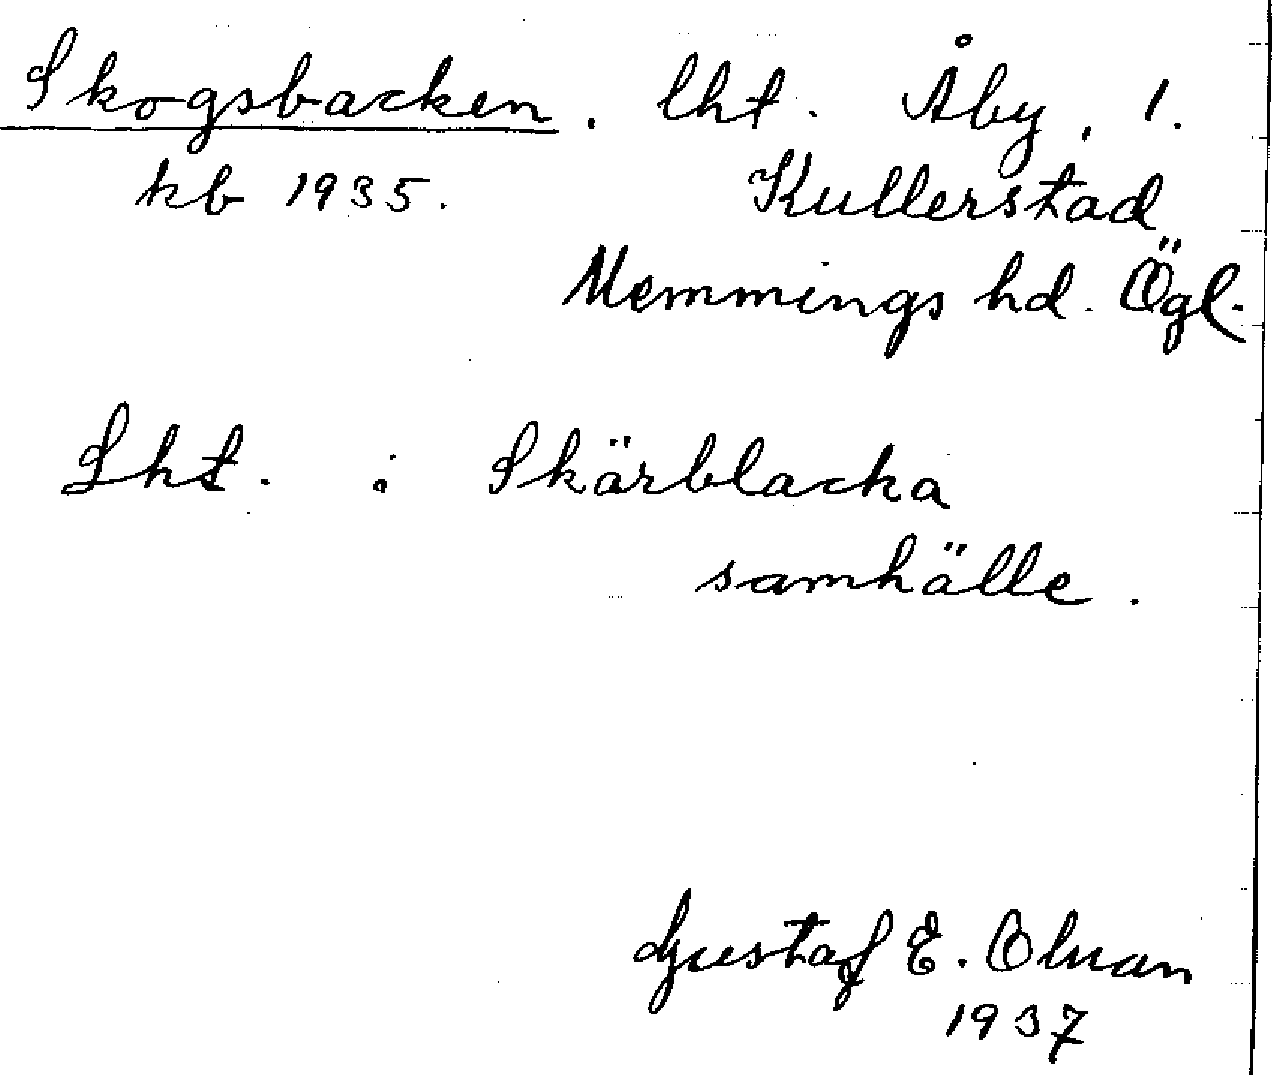 Skogsbacken. lht. Åby, 1.
kb 1935. Kullerstad
Memmings hd. Ögl.
Lht. i Skärblacka
samhälle.
Gustaf E. Olman
1937